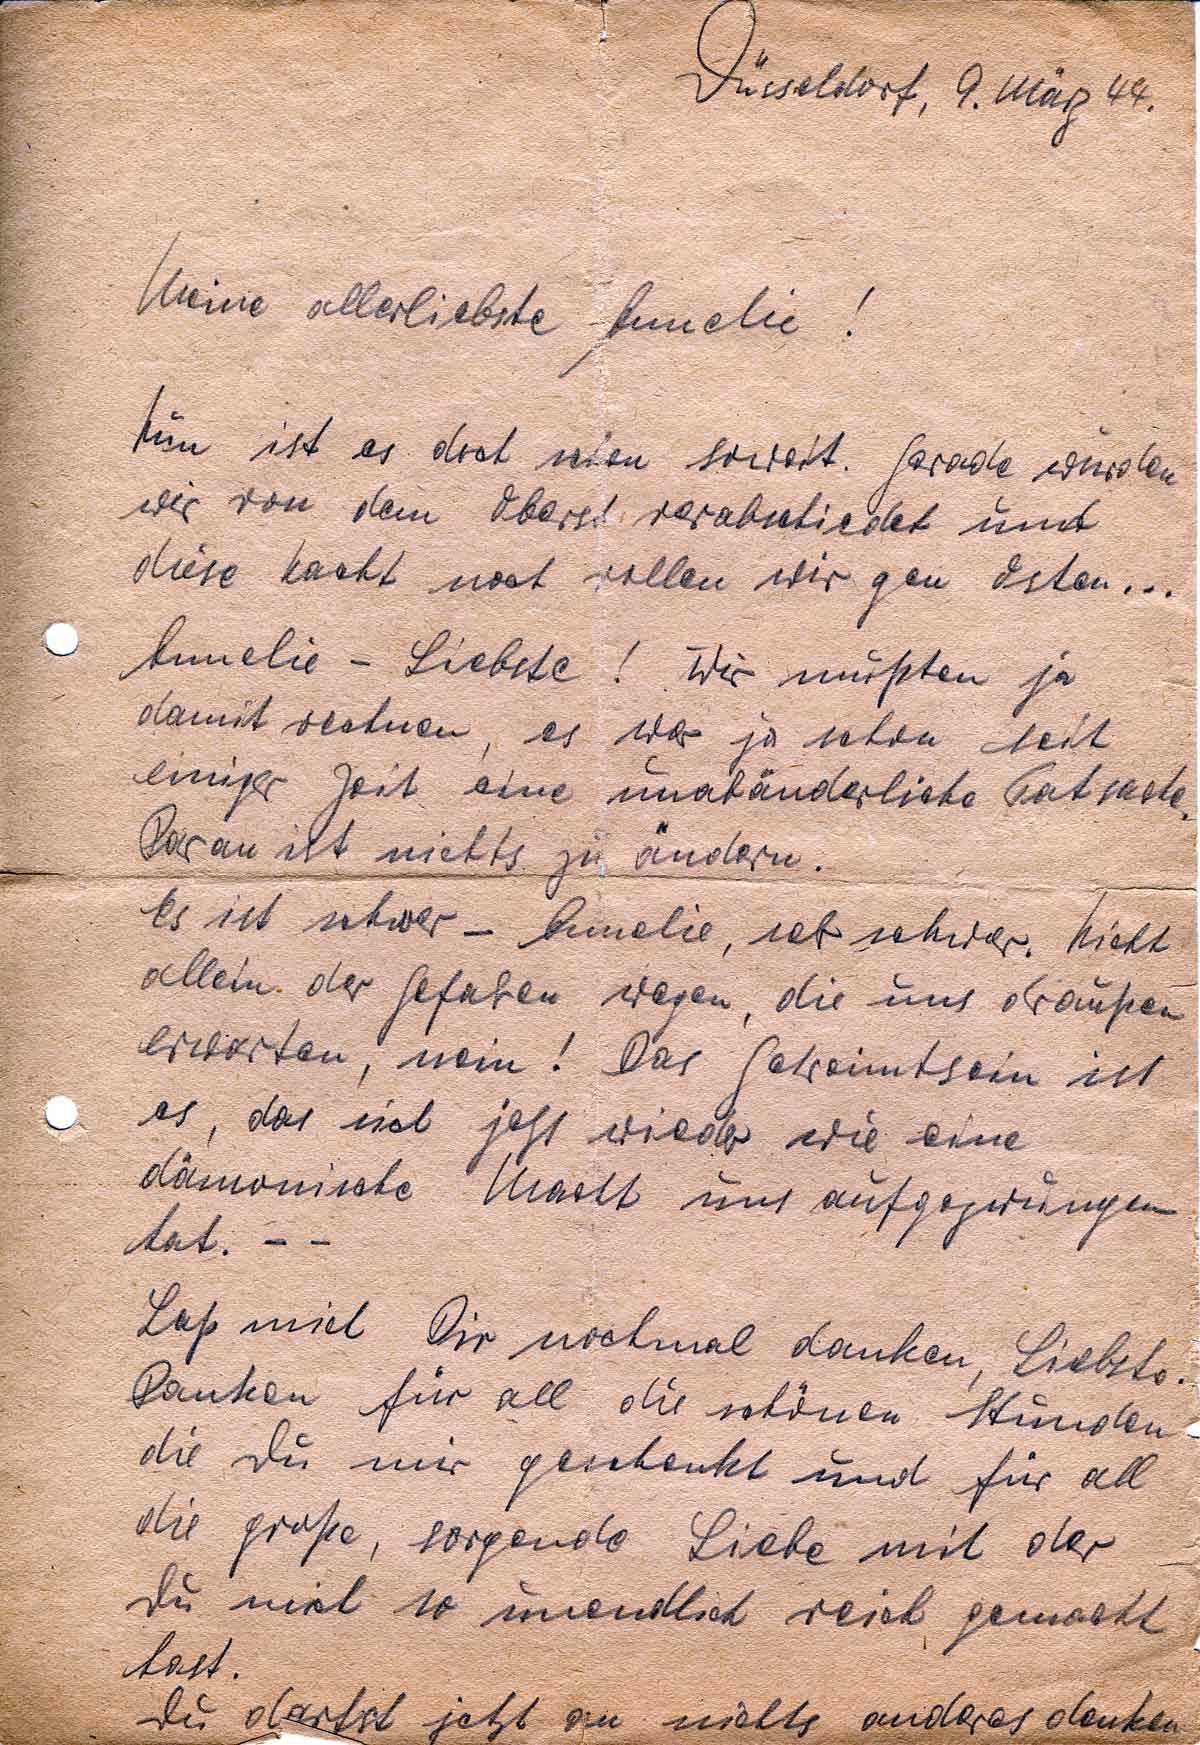 Düsseldorf, 9. März 44.
Meine allerliebste Annelie!
Nun ist es doch schon soweit. Gerade wurden
wir von dem Oberst verabschiedet und
diese Nacht noch rollen wir gen Osten...
Annelie – Liebste! Wir mußten ja
damit rechnen, es war ja schon seit
einiger Zeit eine unabänderliche Tatsache.
Daran ist nichts zu ändern.
Es ist schwer – Annelie, sehr schwer. Nicht
allein der Gefahren wegen, die uns draußen
erwarten, nein! Das Getrenntsein ist
es, das sich jetzt wieder wie eine
dämonische Macht uns aufgezwungen
hat. – –
Laß mich Dir nochmal danken, Liebste.
Danken für all die schönen Stunden
die Du mir geschenkt und für all
die große, sorgende Liebe mit der
Du mich so unendlich reich gemacht
hast.
Du darfst jetzt an nichts anderes denken